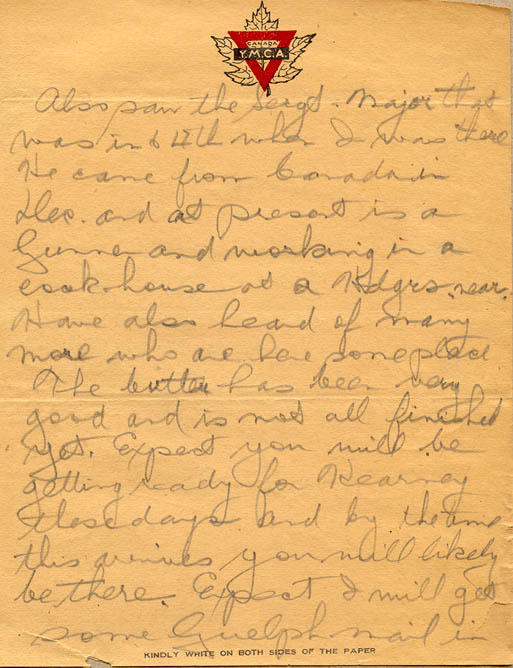 CANADA
Y.M.C.A.
Also saw the Sergt. Major that
was in 64th when I was there
He came from Canada in
Dec. and at present is a
Gunner and working in a
cook-house at a Hdqrs. near.
Have also heard of many
more who are here someplace
The butter has been very
good and is not all finished
yet. Expect you will be
getting ready for Kearney
these days and by the time
this arrives you will likely
be there. Expect I will get
some Guelph mail in
KINDLY WRITE ON BOTH SIDES OF THE PAPER